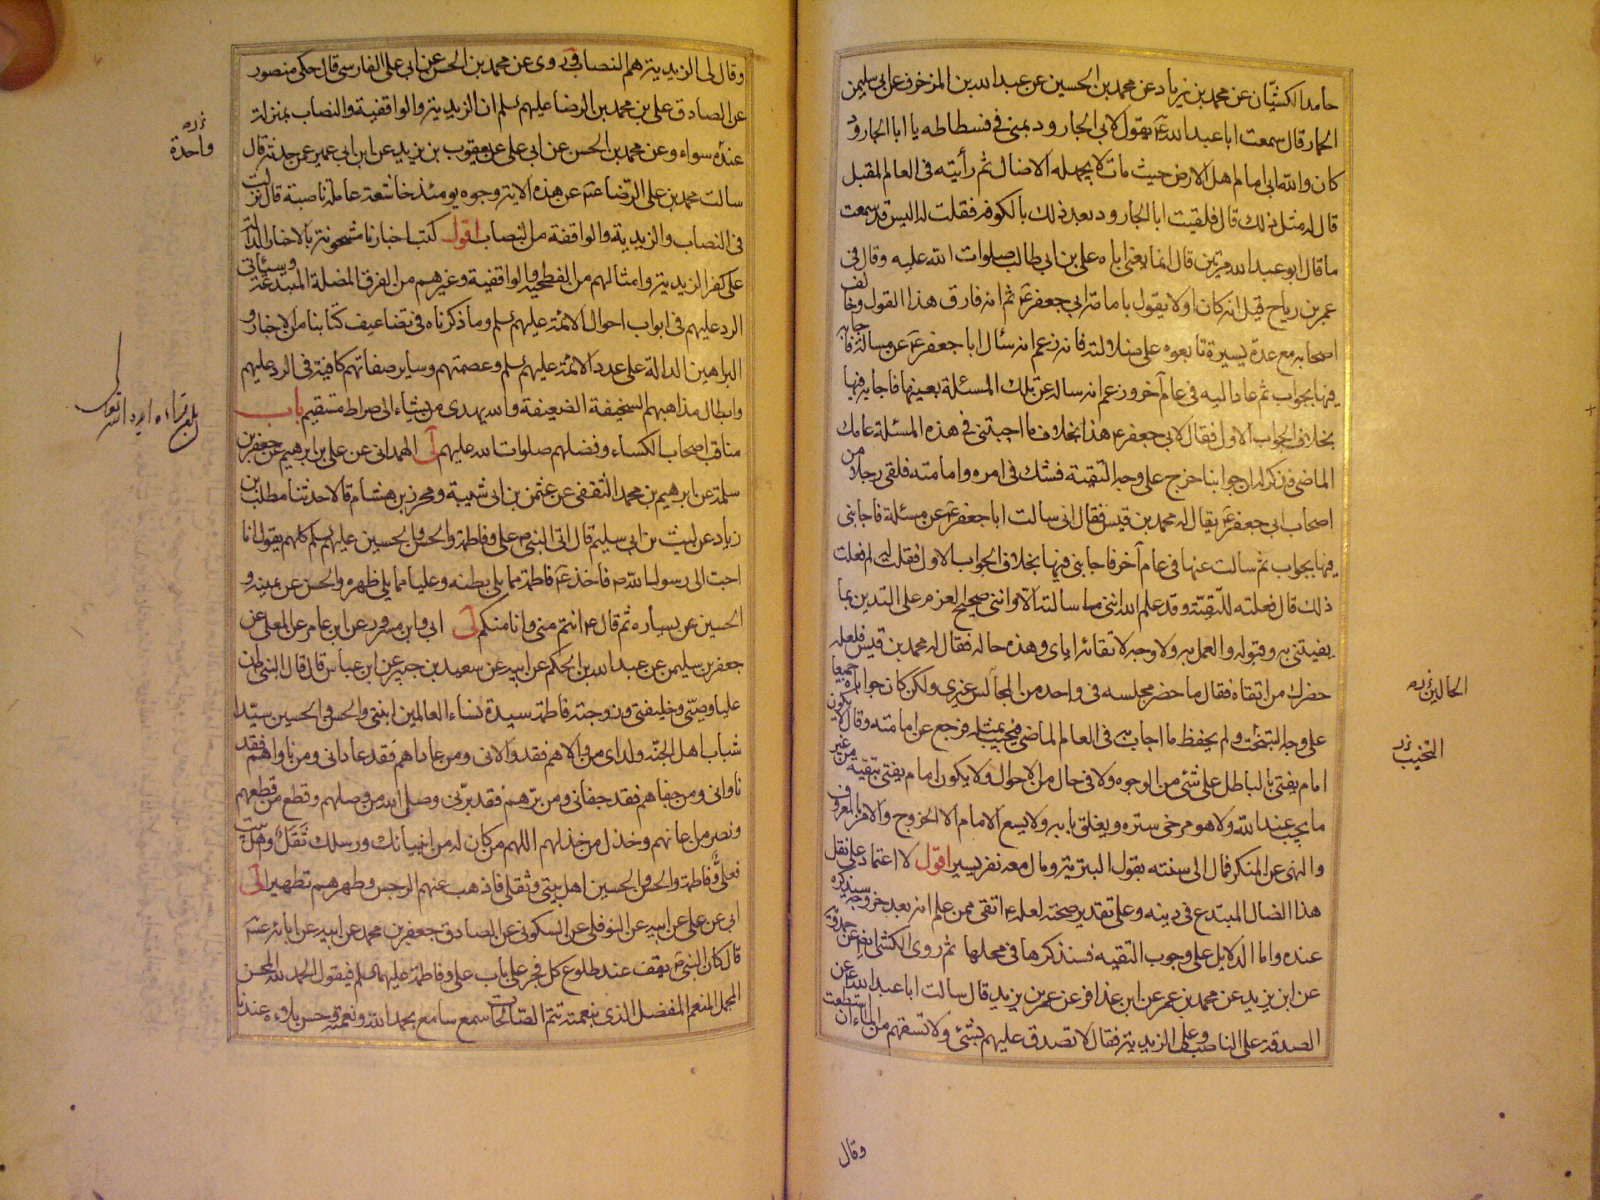 حامد الكشيان عن محمد بن زياد عن محمد بن الحسين عن عبد الله بن المزخرف عن ابي سليمن
الحمار قال سمعت ابا عبد الله ع يقول لابي الجارود بمنى في فسطاطه يا ابا الجارود
كان والله ابي امام اهل الارض حيث مات لا يجهله الا ضال ثم رأيته في العالم المقبل
قال له مثل ذلك قال فلقيت ابا الجارود بعد ذلك بالكوفه فقلت له اليس قد سمعت
ما قال ابو عبد الله مرتين قال انما يعني اباه علي بن ابي طالب صلوات الله عليه وقال في
عمر بن رياح قيل انه كان اولا يقول بامامة ابي جعفر ع ثم انه فارق هذا القول وخالف
اصحابه مع عدة يسيرة تابعوه على ضلالته فانه زعم انه سئال ابا جعفر ع عن مسالة فاجابه
فيها بجواب ثم عاد اليه في عام آخر وزعم انه ساله عن تلك المسئلة بعينها فاجابه فيها
بخلاف الجواب الاول فقال لابي جعفر ع هذا بخلاف ما اجبتني في هذه المسئلة عامك
الماضي فذكر له ان جوابنا خرج على وجه التقية فشك في امره وامامته فلقي رجلا من
اصحاب ابي جعفر ع يقال له محمد بن قيس فقال اني سالت ابا جعفر ع عن مسئلة فاجابني
فيها بجواب ثم سالت عنها في عام آخر فاجابني فيها بخلاف الجواب الاول فقلت له لم فعلت
ذلك قال فعلته للتقية وقد علم الله انني ما سالته الا وانني صحيح العزم على التدين بما
يفتيني به وقبوله والعمل به ولا وجه لاتقائه اياي وهذه حاله فقال له محمد بن قيس فلعله
حضرك من اتقاه فقال ما حضر مجلسه في واحد من المجالس غيري ولكن كان جواباه جميعا
على وجه التبخت ولم يحفظ ما اجاب به في العام الماضي فيجيب بمثله فرجع عن امامته وقال لا يكون
امام يفتي بالباطل على شئ من الوجوه ولا في حال من الاحوال ولا يكون امام يفتي بتقيه من غير
ما يجب عند الله ولا هو مرخي ستره ويغلق بابه ولا يسع الامام الا الخروج والامر بالمعروف
والنهي عن المنكر فمال الى سنته بقول البترية ومال معه نفر يسير اقول لا اعتماد على نقل
هذا الضال المبتدع في دينه وعلى تقدير صحته لعله ع اتقى ممن علم انه بعد خروجه سيذكره
عنده واما الدلايل على وجوب التقيه فسنذكرها في محلها ثم روى الكشي ايضا عن حمدويه
عن ابن يزيد عن محمد بن عمر عن ابن عذافر عن عمر بن يزيد قال سالت ابا عبد الله ع عن
الصدقة على الناصب وعلى الزيدية فقال لا تصدق عليهم بشئ ولا تسقهم من الماء ان استطعت
الحالين
التخيب
وقال
وقال لي الزيدية هم النصاب وروى عن محمد بن الحسن عن ابي علي الفارسي قال حكى منصور
عن الصادق علي بن محمد بن الرضا عليهم سلم ان الزيدية والواقفية والنصاب بمنزلة
عنده سواء وعن محمد بن الحسن عن ابي علي عن يعقوب بن يزيد عن ابن ابي عمير عمن حدثه قال
سالت محمد بن علي الرضا ع عن هذه الاية وجوه يومئذ خاشعة عاملة ناصبة قال نزلت
في النصاب والزيدية والواقفة من النصاب اقول كتب اخبارنا مشحونة بالاخبار الدالة
على كفر الزيدية وامثالهم من الفطحية والواقفية وغيرهم من الفرق المضلة المبتدعة وسيأتي
الرد عليهم في ابواب احوال الائمة عليهم سلم وما ذكرناه في تضاعيف كتابنا من الاخبار و
البراهين الدالة على عدد الائمة عليهم سلم وعصمتهم وساير صفاتهم كافية في الرد عليهم
وابطال مذاهبهم السخيفة الضعيفة والله يهدي من يشاء الى صراط مستقيم باب
مناقب اصحاب الكساء وفضلهم صلوات الله عليهم لي الهمداني عن علي بن ابرهيم عن جعفر بن
سلمة عن ابرهيم بن محمد الثقفي عن عثمن بن ابي شيبة ومحرز بن هشام قالا حدثنا مطلب بن
زياد عن ليث بن ابي سليم قال اتى النبي ص علي وفاطمة والحسن والحسين عليهم سلم كلهم يقول انا
احب الى رسول الله ص فاخذ ع فاطمة مما يلي بطنه وعليا مما يلي ظهره والحسن عن يمينه و
الحسين عن يساره ثم قال ع انتم مني وانا منكم لي ابي وابن مسرور عن ابن عامر عن المعلى عن
جعفر بن سليمن عن عبد الله بن الحكم عن ابيه عن سعيد بن جبير عن ابن عباس قال قال النبي ص ان
عليا وصيي وخليفتي وزوجته فاطمة سيدة نساء العالمين ابنتي والحسن والحسين سيدا
شباب اهل الجنة ولداي من والاهم فقد والاني ومن عاداهم فقد عاداني ومن ناواهم فقد
ناواني ومن جفاهم فقد جفاني ومن برهم فقد برني وصل الله من وصلهم وقطع من قطعهم
ونصر من اعانهم وخذل من خذلهم اللهم من كان له من انبيائك ورسلك ثقل واهل بيت
فعلي وفاطمة والحسن والحسين اهل بيتي وثقلي فاذهب عنهم الرجس وطهرهم تطهيرا لي
ابي عن علي عن ابيه عن النوفلي عن السكوني عن الصادق جعفر بن محمد عن ابيه عن آبائه ع
قال كان النبي ص يقف عند طلوع كل فجر على باب علي وفاطمة عليهما سلم فيقول الحمد لله المحسن
المجمل المنعم المفضل الذي بنعمته تتم الصالحات سمع سامع بحمد الله ونعمته وحسن بلاءه عندنا
واحدة